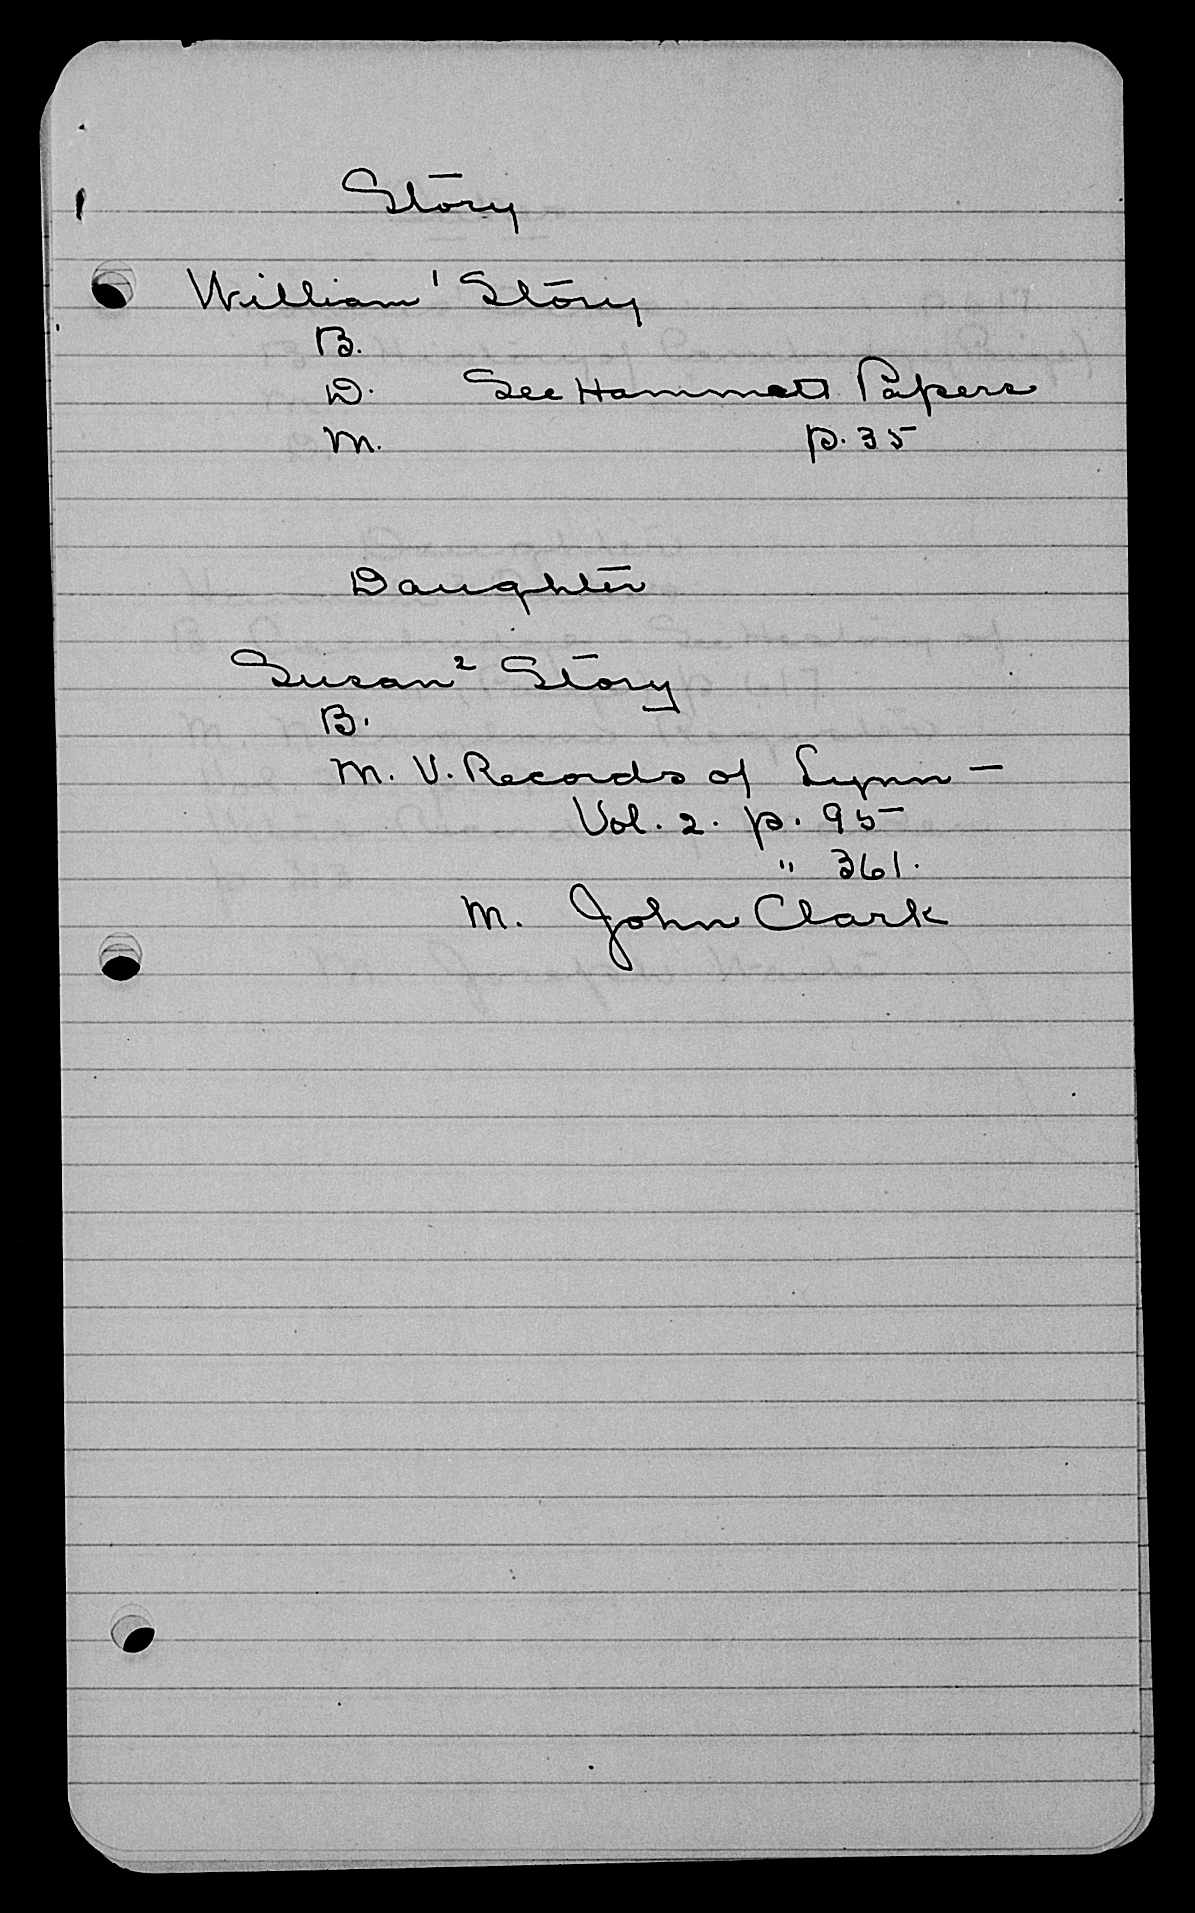 Story
William¹ Story
B.
D. See Hammatt Papers
M. p. 35
Daughter
Susan² Story
B.
M. V. Records of Lynn —
Vol. 2. p. 95
" 361.
M. John Clark